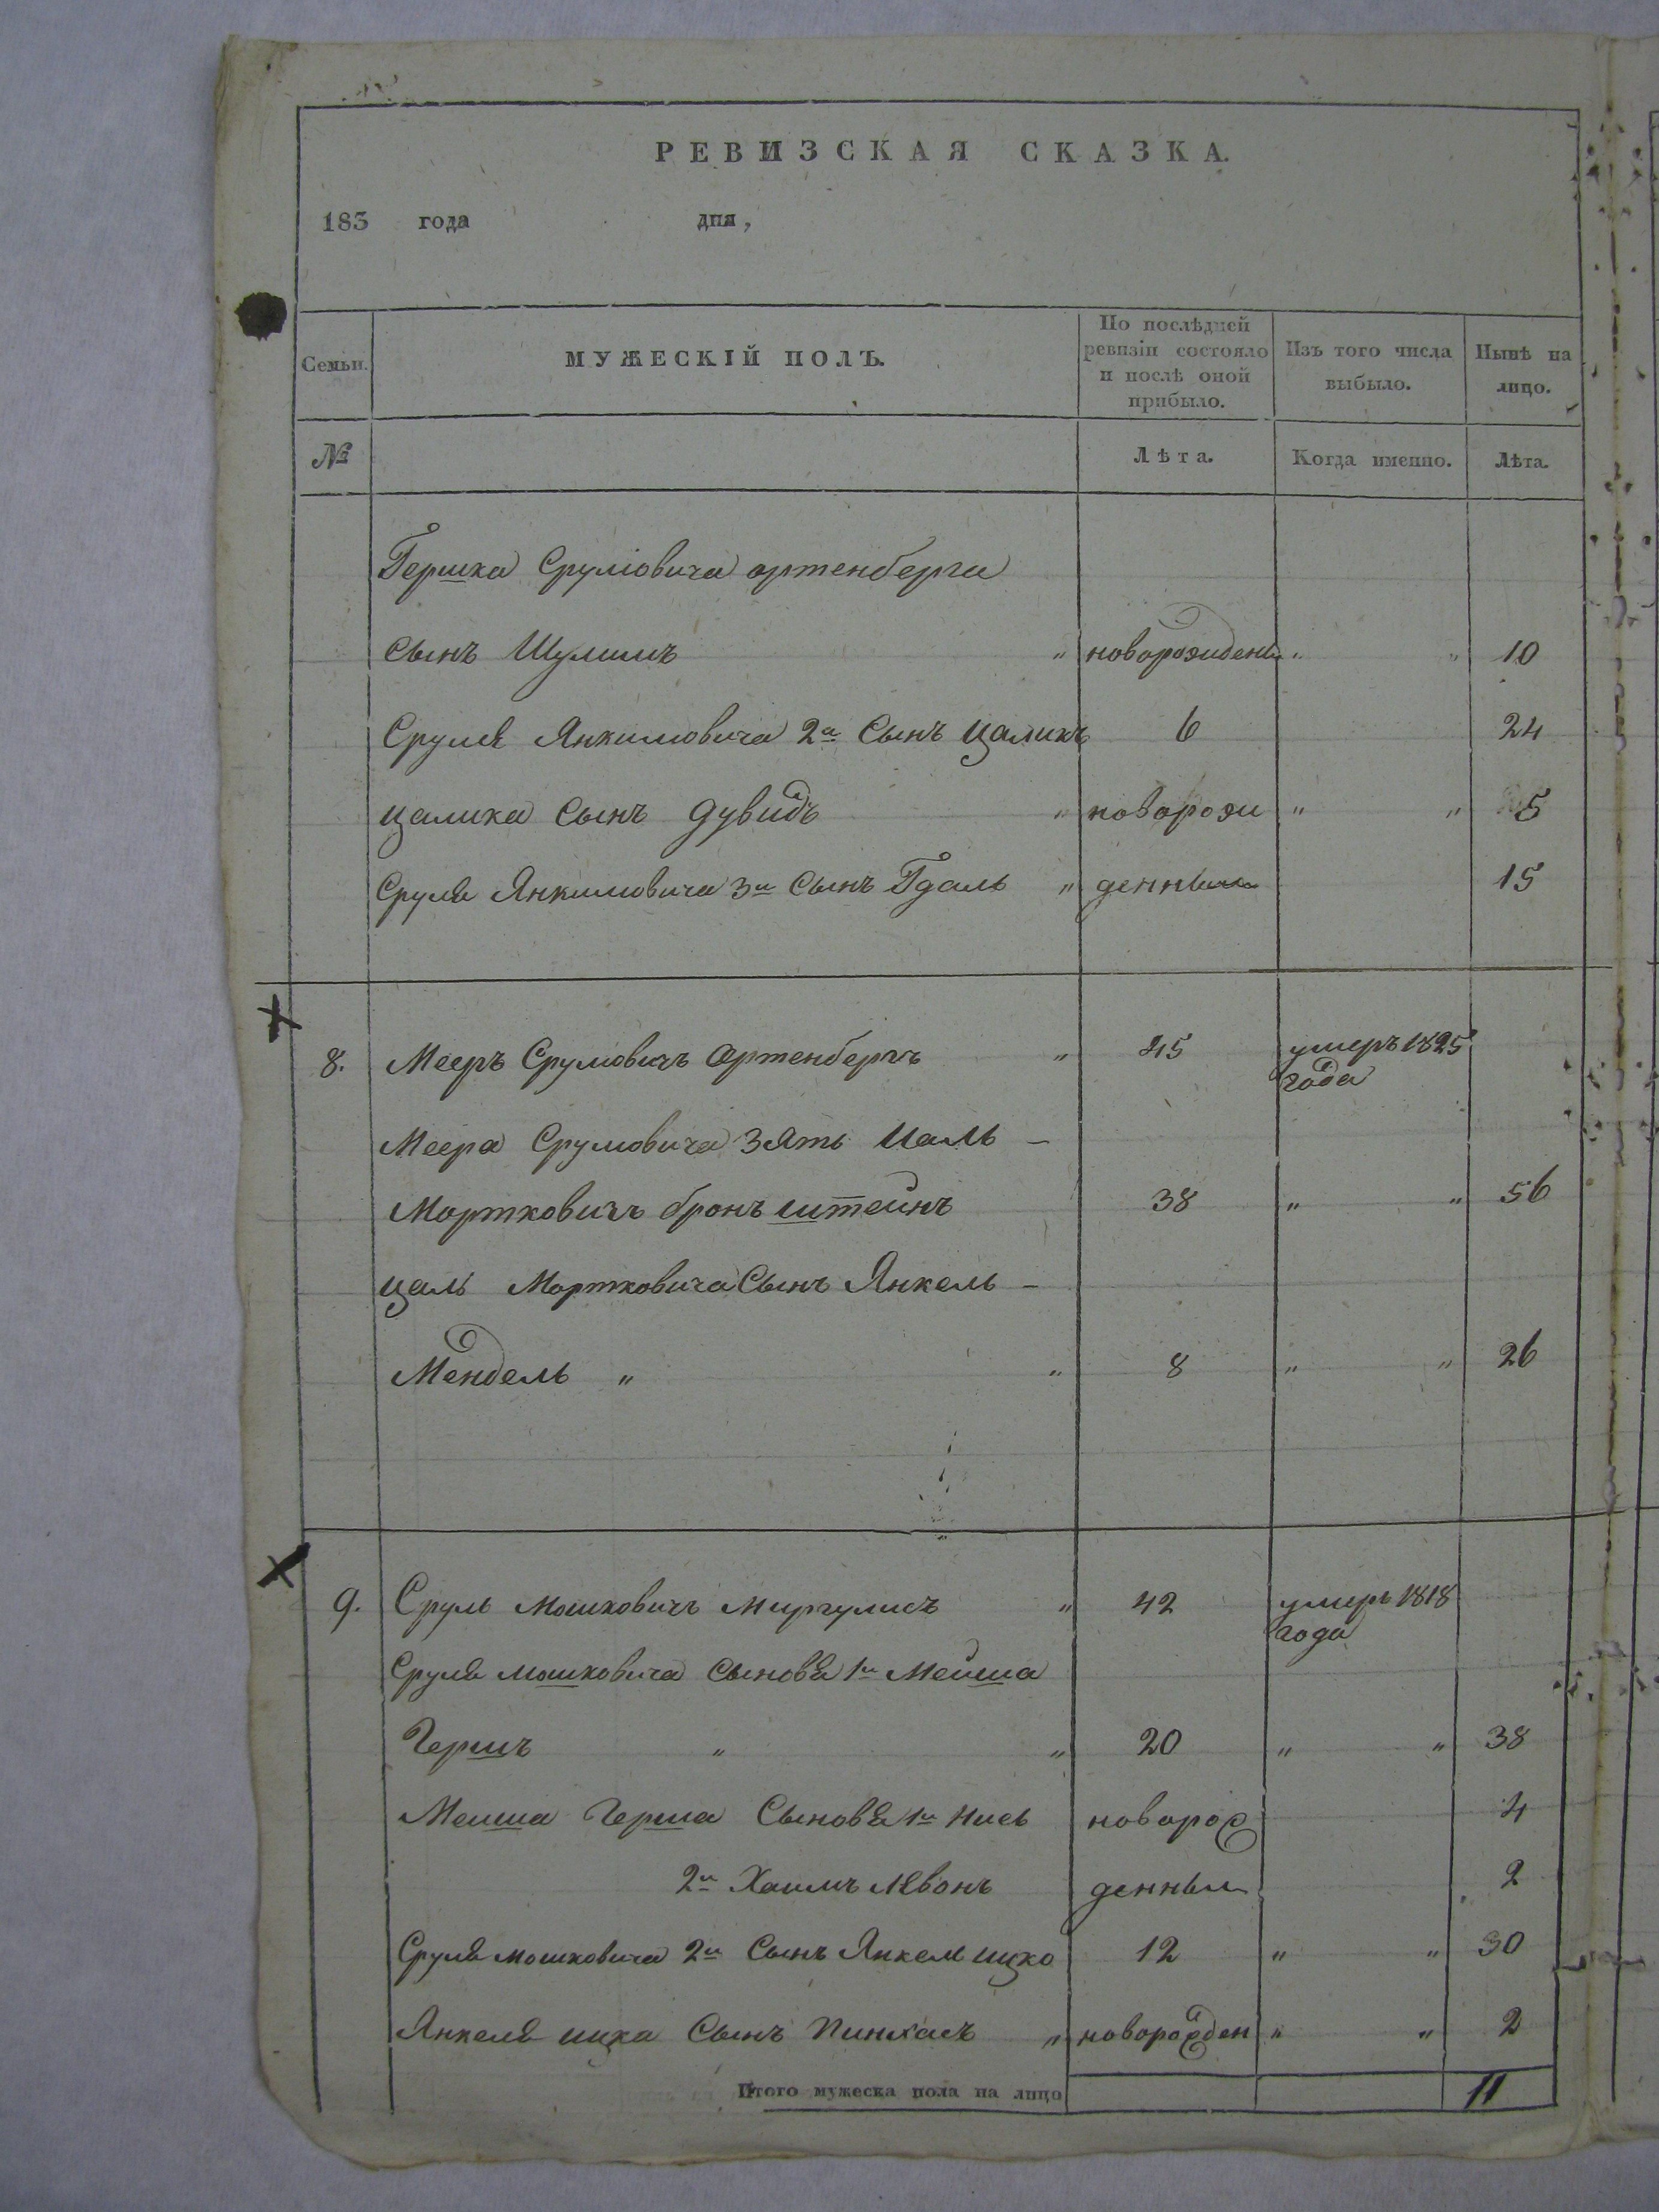 РЕВИЗСКАЯ СКАЗКА.
183 года дня,
Семьи.
МУЖЕСКІЙ ПОЛЪ.
По послѣдней ревизіи состояло и послѣ оной прибыло.
Изъ того числа выбыло.
Нынѣ на лицо.
№ Лѣта. Когда именно. Лѣта.
Гершка Срулювича ортенберга
сынъ Шулимъ " новорожден " " 10
Сруля Янкиловича 2й Сынъ Цаликъ 6 24
цалика Сынъ Дувидъ " новорож " " 5
Сруля Янкиловича 3й Сынъ Гдаль " денный 15
8. Мееръ Срулювичъ Ортенбергъ " 45 умеръ 1825
года
Меера Срулювича Зять Цаль —
Мортковичъ бронъштейнъ 38 " " 56
цаль Мортковича Сынъ Янкель —
Мендель " " 8 " " 26
9. Сруль Мошковичъ Мургулисъ " 42 умеръ 1818
года
Сруля Мошковича Сыновья 1й Мейша
Гершъ " " 20 " " 38
Меиша Герша Сыновья 1й Нись новорож 4
2й Хаимъ Лѣвонъ денный 2
Сруля Мошковича 2й Сынъ Янкель ицко 12 " " 30
Янкеля ицка Сынъ Пинхасъ " новорожден " " 2
Итого мужеска пола на лицо 11